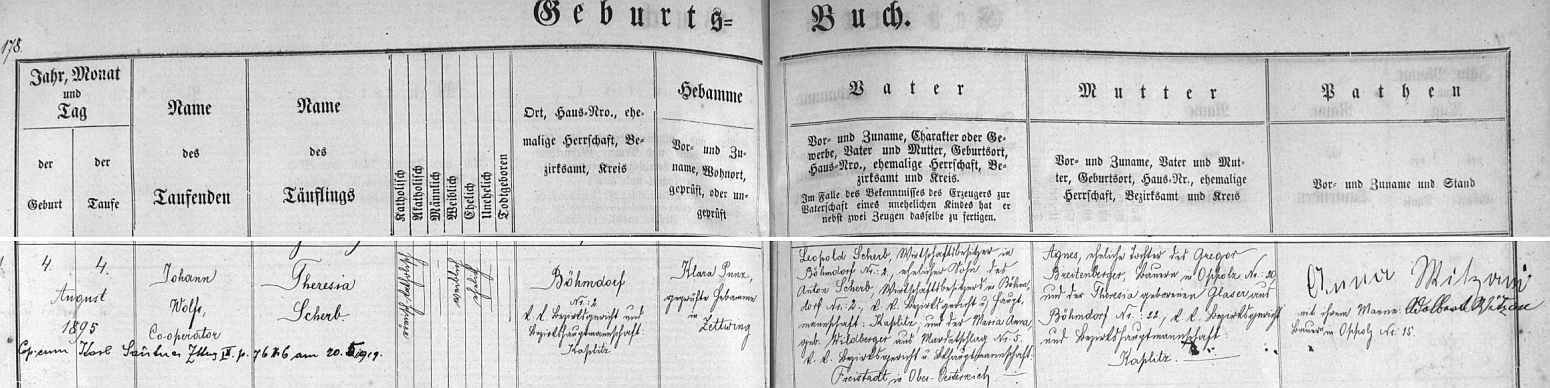 Geburts-Buch.
178.
Jahr, Monat
und
Tag
der
Geburt
der
Taufe
Name
des
Taufenden
Name
des
Täuflings
Katholisch
Akatholisch
Männlich
Weiblich
Ehelich
Unehelich
Todtgeboren
Ort, Haus-Nro., ehe-
malige Herrschaft, Be-
zirksamt, Kreis
Hebamme
Vor- und Zu-
name, Wohnort,
geprüft, oder un-
geprüft
Vater
Vor- und Zuname, Charakter oder Ge-
werbe, Vater und Mutter, Geburtsort,
Haus-Nro., ehemalige Herrschaft, Be-
zirksamt und Kreis.
Im Falle des Bekenntnisses des Erzeugers zur
Vaterschaft eines unehelichen Kindes hat er
nebst zwei Zeugen dasselbe zu fertigen.
Mutter
Vor- und Zuname, Vater und Mut-
ter, Geburtsort, Haus-Nr., ehemalige
Herrschaft, Bezirksamt und Kreis
Pathen
Vor- und Zuname und Stand
4.
4.
August
1895
Johann
Wolf,
Cooperator
Theresia
Scherb
Böhmdorf
Nr. 2
k. k. Bezirksgericht und
Bezirkshauptmannschaft
Kaplitz
Klara Punz,
geprüfte Hebamme
in
Zettwing
Leopold Scherb, Wirtschaftsbesitzer in
Böhmdorf Nr. 2, ehelicher Sohn des
Anton Scherb Wirtschaftsbesitzers in Böhm-
dorf Nr. 2, k. k. Bezirksgericht u. Haupt-
mannschaft Kaplitz, und der Maria Anna
geb. Wildberger aus Martetschlag Nr. 5.
k. k. Bezirksgericht u. Bhauptmannschaft
Freistadt in Ober-Österreich
Agnes, eheliche Tochter des Gregor
Breitenberger, Bauers in Oppolz Nr. 20
und der Theresia geborenen Glaser aus
Böhmdorf Nr. 22, k. k. Bezirksgericht
und Bezirkshauptmannschaft
Kaplitz.
Anna Witzani
mit ihrem Manne
Bauer in Oppolz Nr. 15.
Cop. cum Karl am 20. 1919.